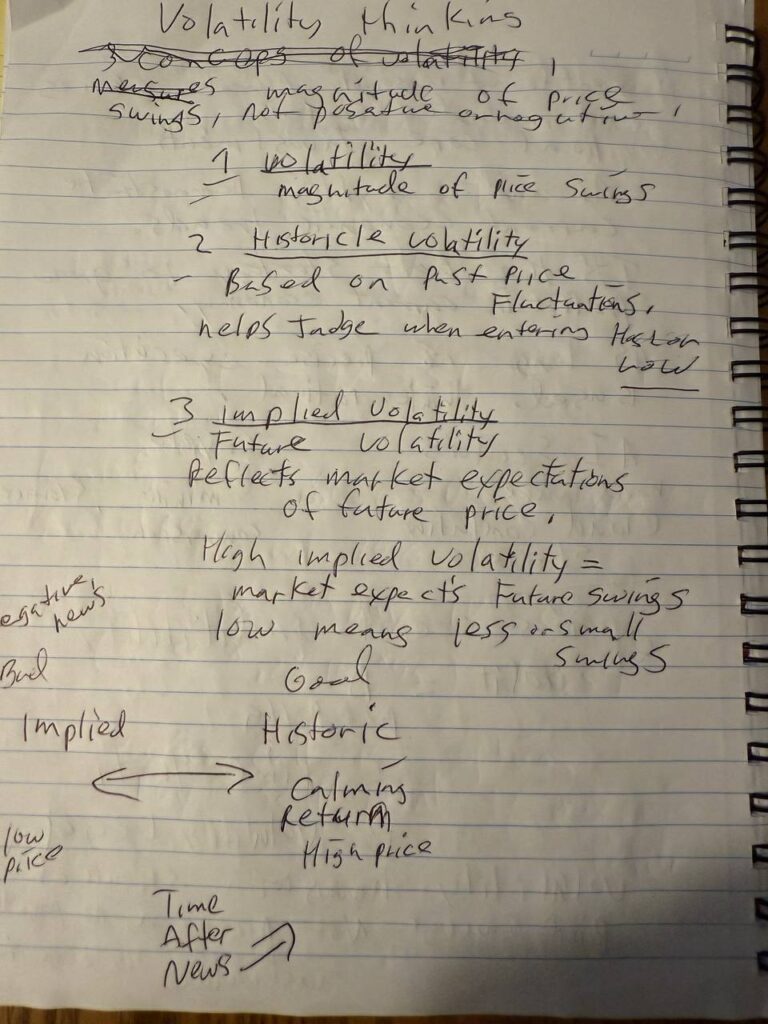 Volatility thinking
3 conceps of volatility,
measures magnitude of price
swings, not posative or negative,
1 volatility
magnitude of price swings
2 Historicle volatility
- Based on past price
Fluctuations,
helps Judge when entering
low
3 implied volatility
Future volatility
Reflects market expectations
of future price,
High implied volatility =
market expects Future swings
low means less or small
swings
egative,
news
Bad Goal
Implied Historic
Calming
Return
High price
low
price
Time
After
News